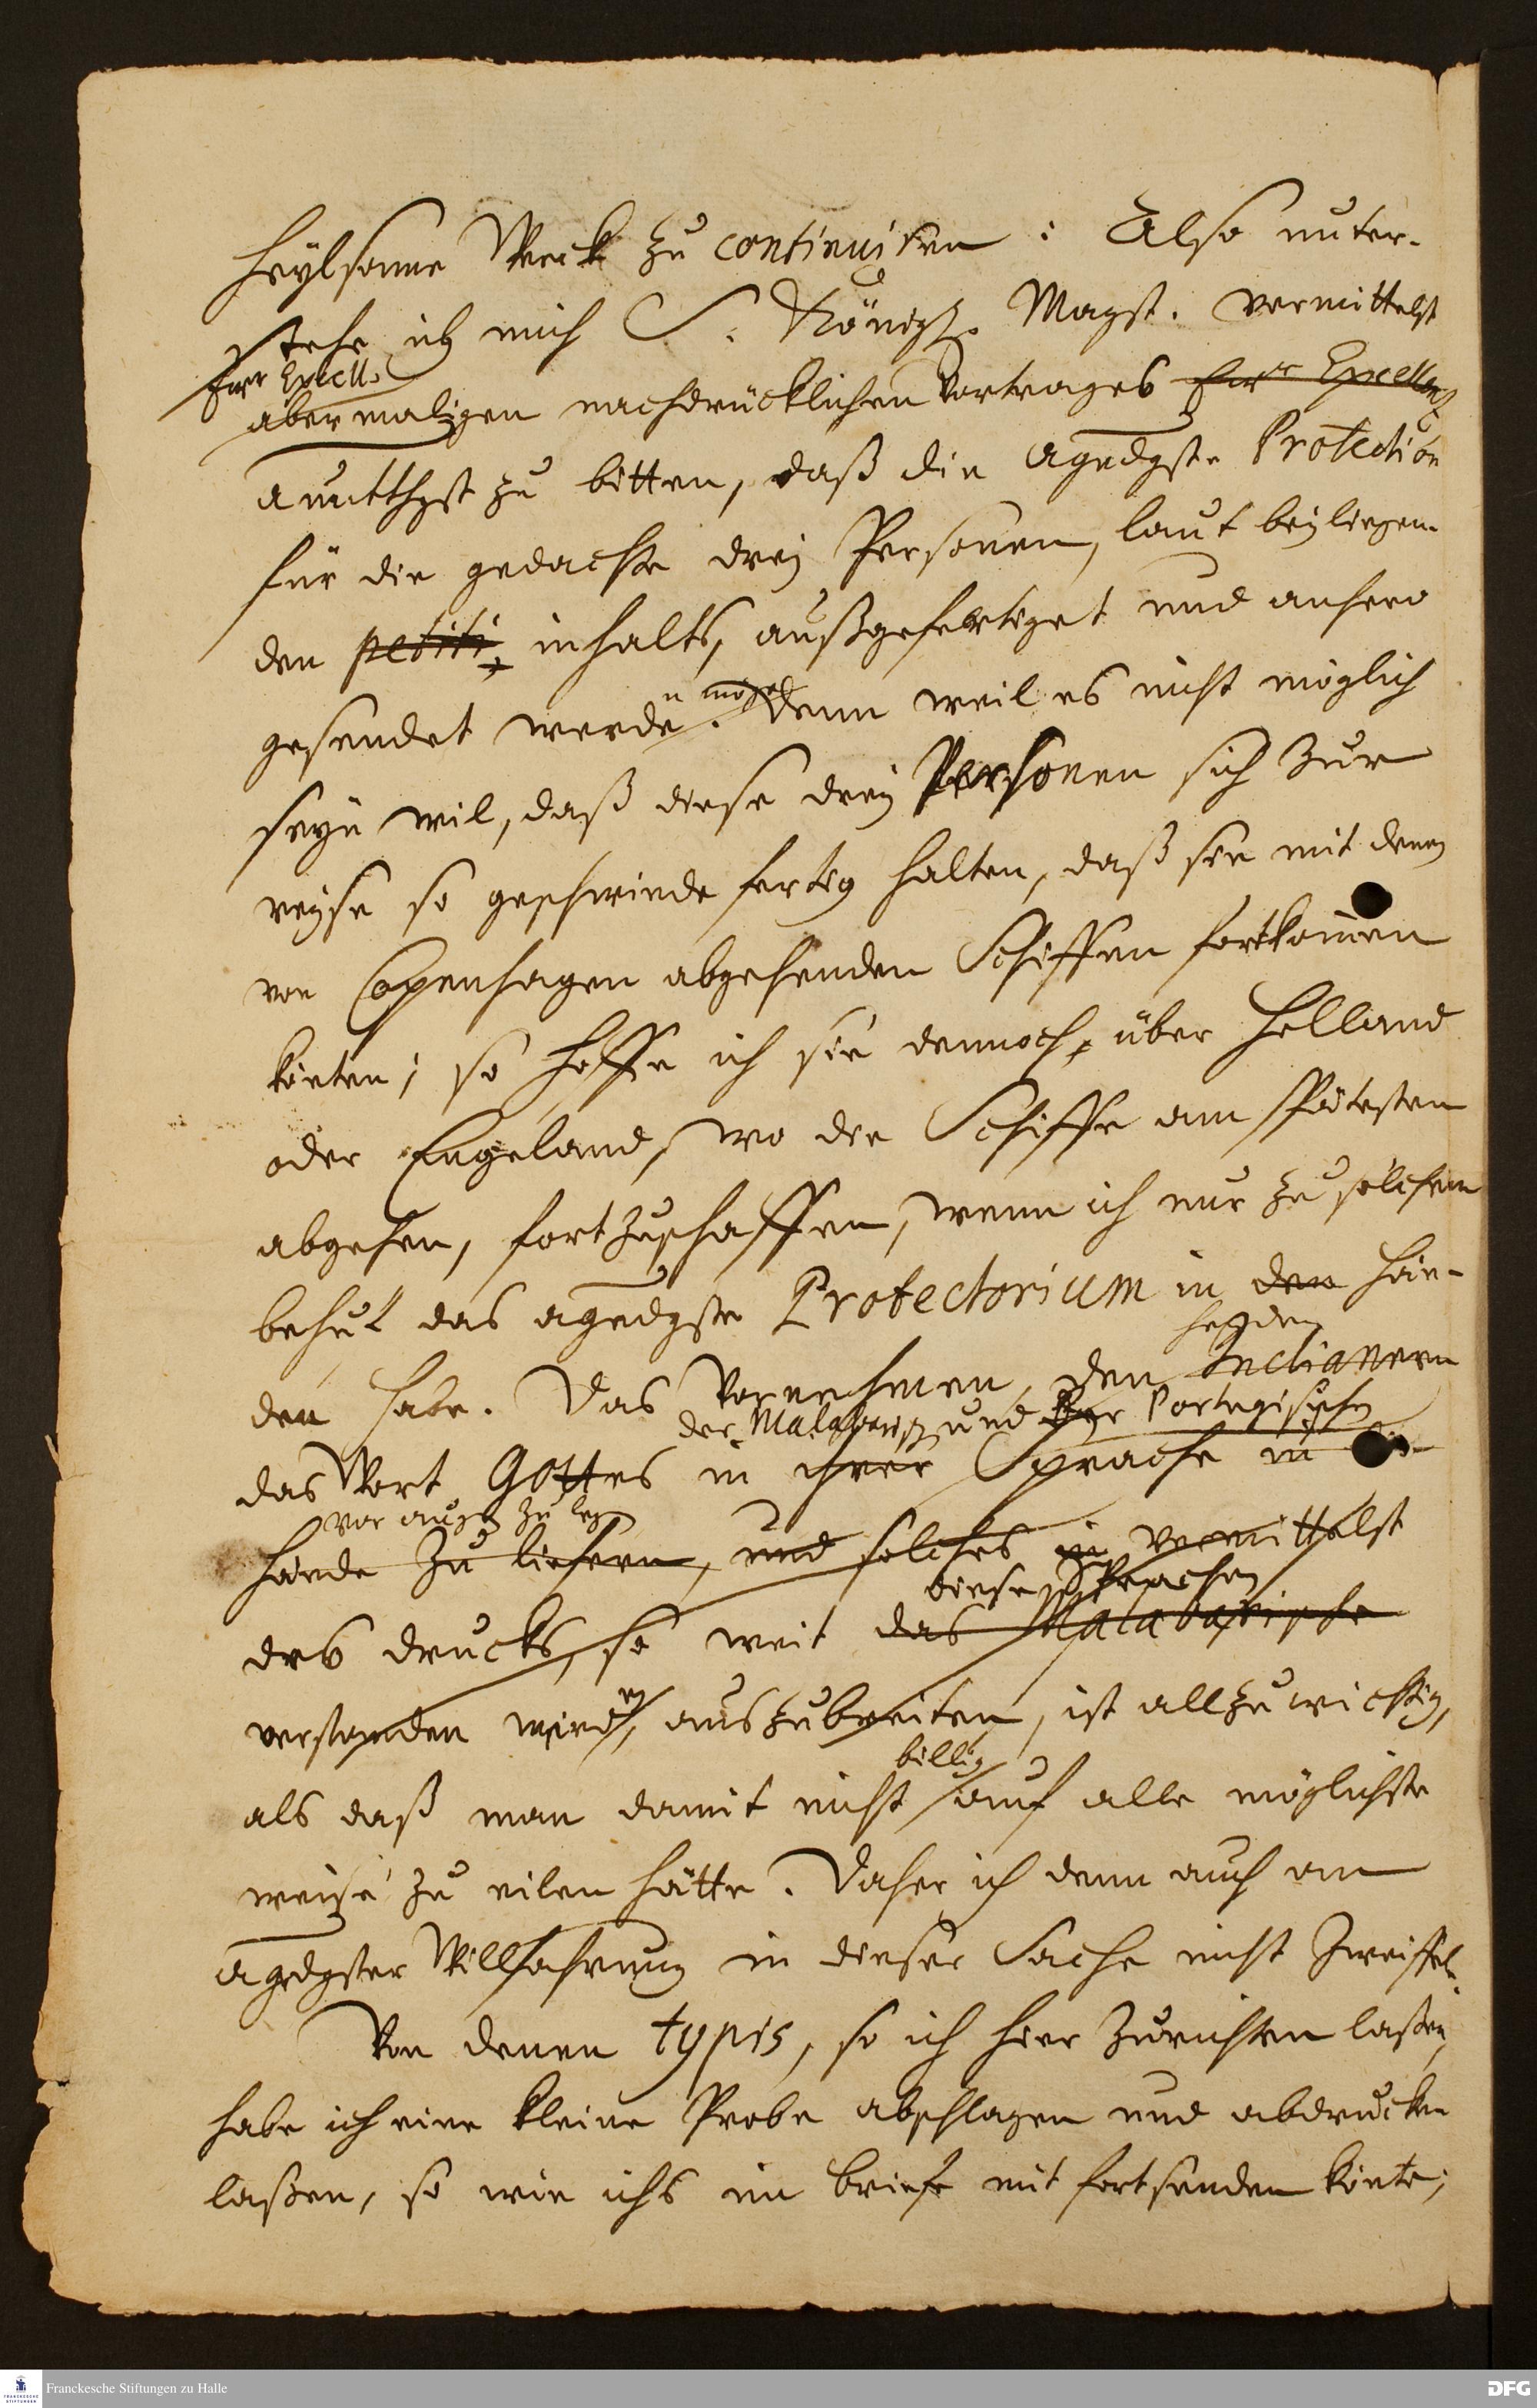 heylsame Werck zu continuiren: Also unter-
stehe ich mich S. Königl. Mayst. vermittelst
Eurer Excell.
abermaligen nachdrücklichen Vortrages Eurer Excellenz
zu bitten, daß die agndgste Protection
für die gedachte drey Personen, laut beyliegen-
den petiti inhalts, außgefertiget und anhero
n möge
gesendet werde. Denn weil es nicht möglich
seyn wil, daß diese drey Personen sich zur
reyse so geschwinde fertig halten, daß sie mit denen
von Copenhagen abgehenden Schiffen fortkom̄en
könten; so hoffe ich sie dennoch, über Holland
oder Engeland, wo die Schiffe am spätesten
abgehen, fortzuschaffen, wenn ich nur zu solchem
behuf das agndgste Protectorium in den Hän-
den habe. Das Vornehmen, den Indianern
der Malabarisch und der Portugisischen
das Wort Gottes in ihrer Sprache in
vor augen zu legen
hände zu liefern, und solches in vermittelst
diese Sprachen
des drucks, so weit das Malabarische
verstanden wird, auszubreiten, ist allzu wichtig,
billig
als daß man damit nicht auf alle möglichste
weise zu eilen hätte. Daher ich denn auch an
agndgster Willfahrung in dieser Sache nicht zweiffele.
Von denen typis, so ich hier zurichten laßen,
habe ich eine kleine Probe abschlagen und abdrucken
laßen, so wie ichs im briefe mit fortsenden könte;
Franckesche Stiftungen zu Halle
FRANCKESCHE STIFTUNGEN
DFG